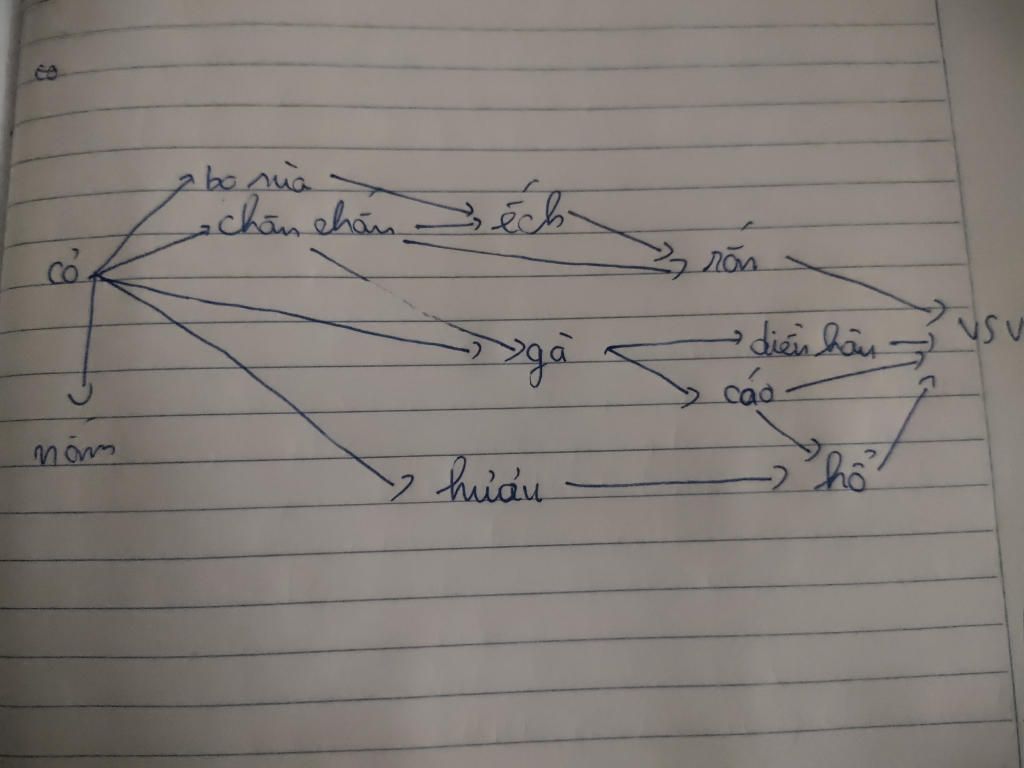 bọ rùa
châu chấu ếch
cỏ rắn
gà diều hâu VSV
cáo
nấm hươu hổ